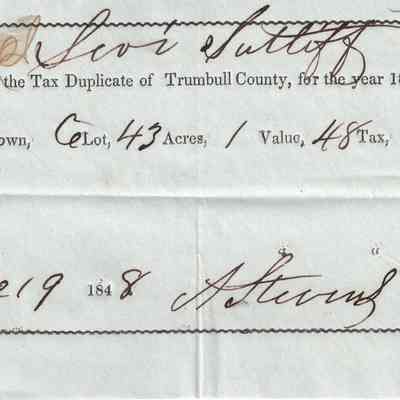 Levi Sutliff
the Tax Duplicate of Trumbull County, for the year 18
own, 6 Lot, 43 Acres, 1 Value, 48 Tax,
" "
19 1848 A Stevens